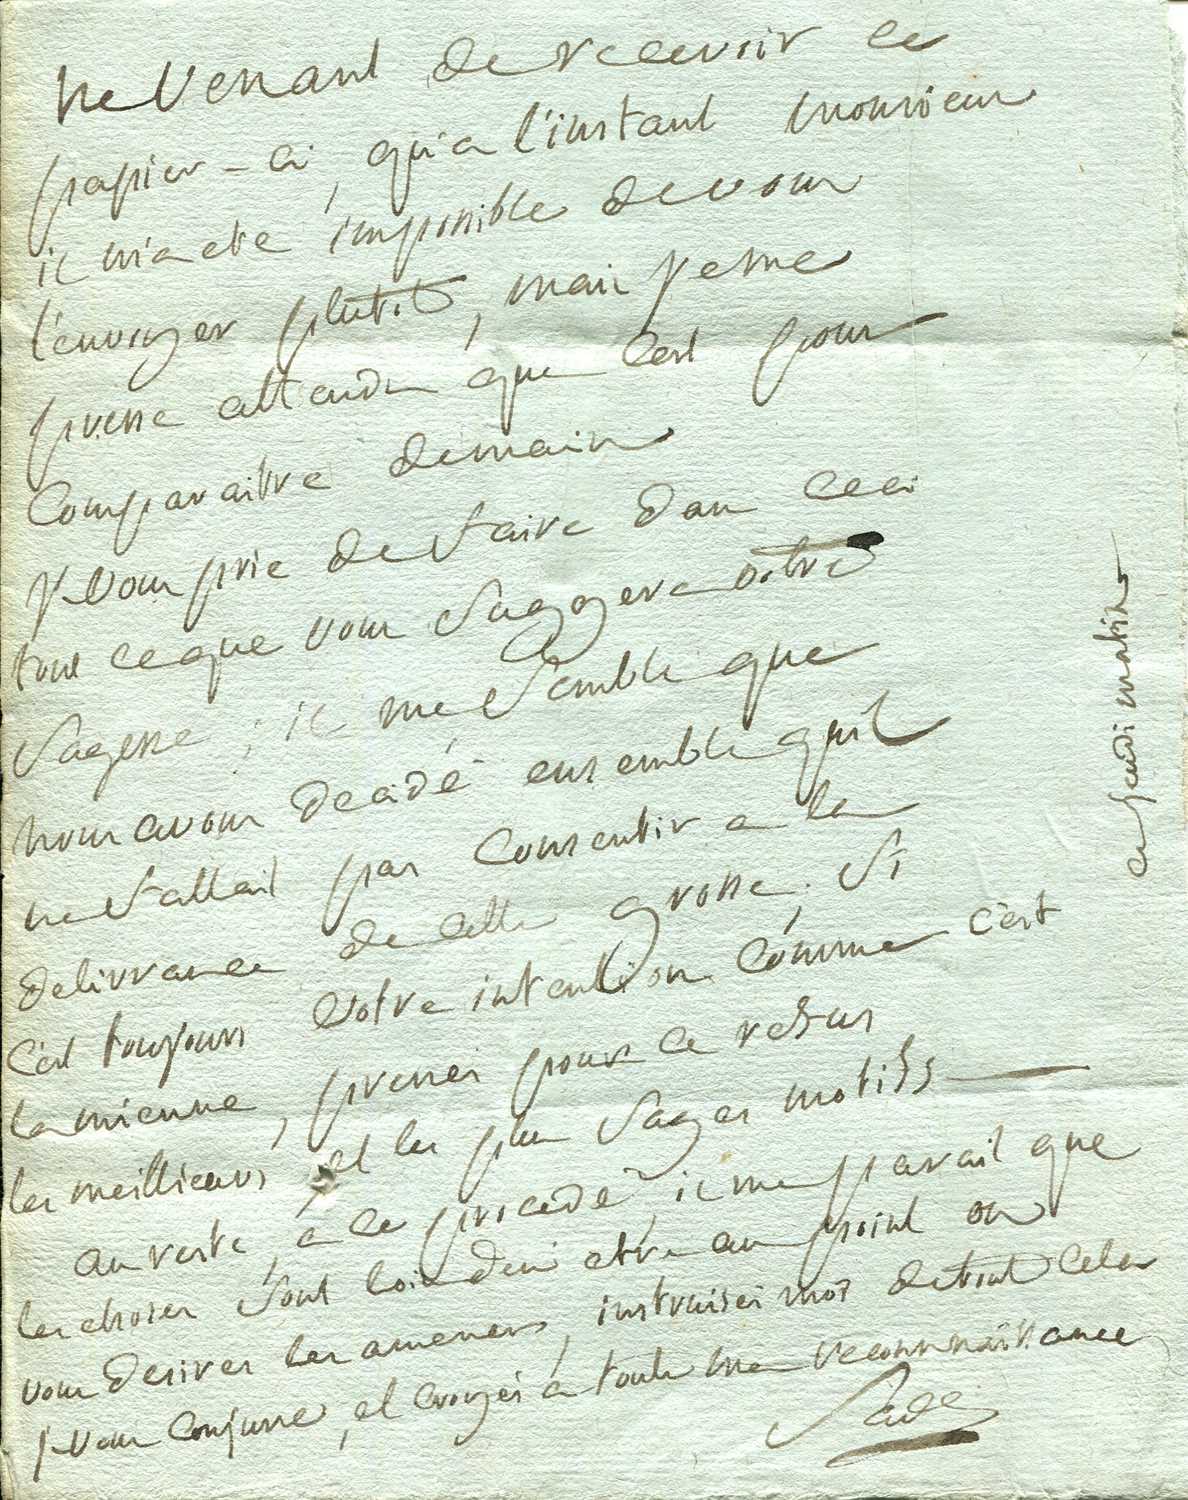 ne venant de recevoir ce
papier-ci, qu'a l'instant monsieur
il m'a ete impossible de vous
l'envoyer plutot, mais je me
presse attendu que c'est pour
comparaitre demain
je vous prie de faire dans ceci
tout ce que vous suggerera votre
sagesse; il me semble que
nous avons décidé ensemble qu'il
ne fallait pas consentir a la
delivrance de cette grosse; si
c'est toujours votre intention comme c'est
la mienne, prenez pour ce refus
les meilleurs, et les plus sages motifs
au reste, a ce procédé, il me parait que
les choses sont loin d'en etre au point ou
vous desirez les amener, instruisez moi de tout cela
je vous conjure, et croyés a toute ma reconnaissance
Sade
ce jeudi matin